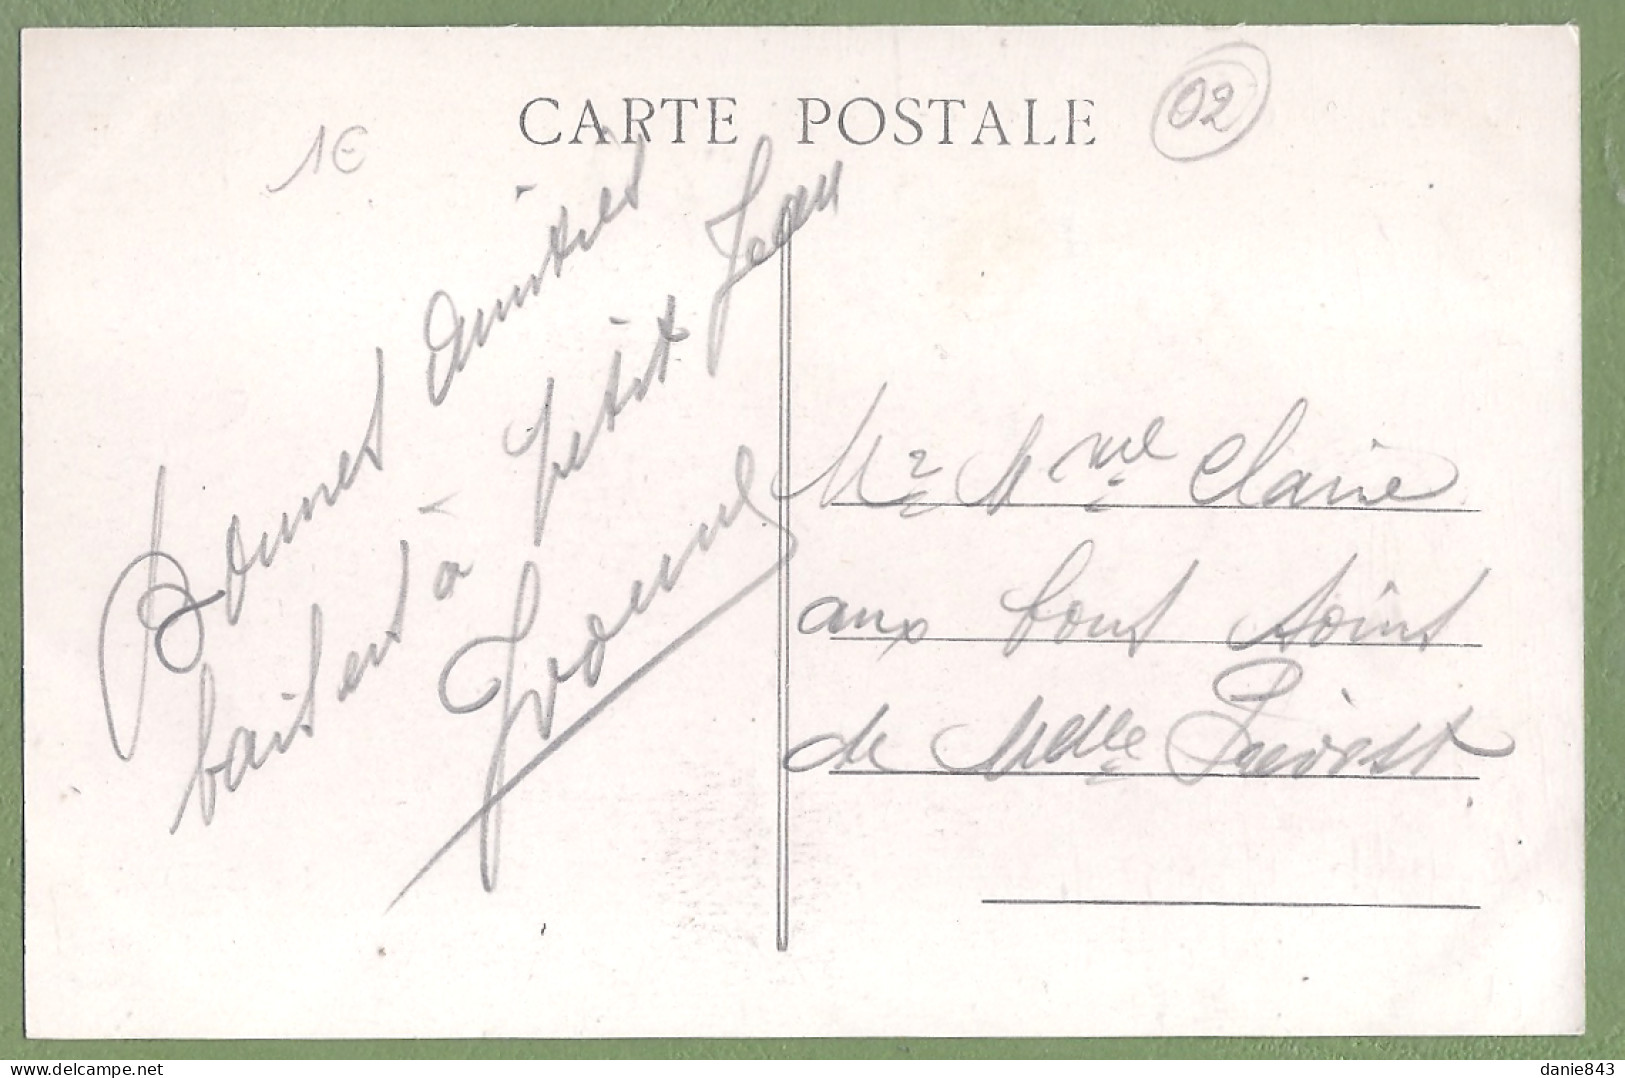 CARTE POSTALE
1€
02
Bonnes amitiés
baisers à petit Jean
Yvonne
Mr & Mme Claire
aux bons soins
de Melle
delcampe.net
danie843